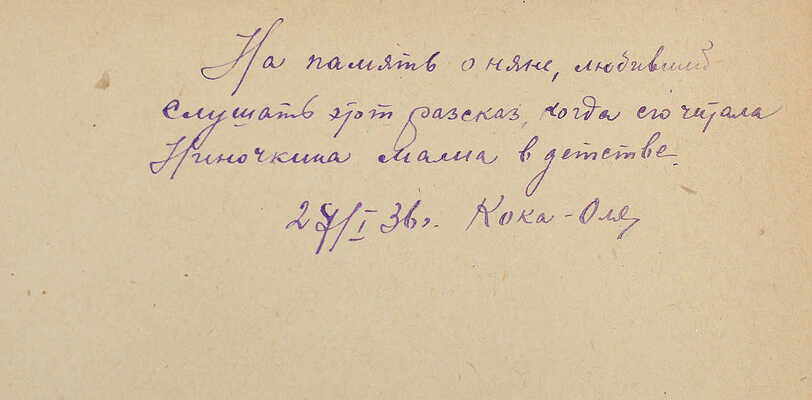 На память о няне, любившей
слушать этот разсказ, когда его читала
Ниночкина мама в детстве.
27/I 36г. Кока-Оля